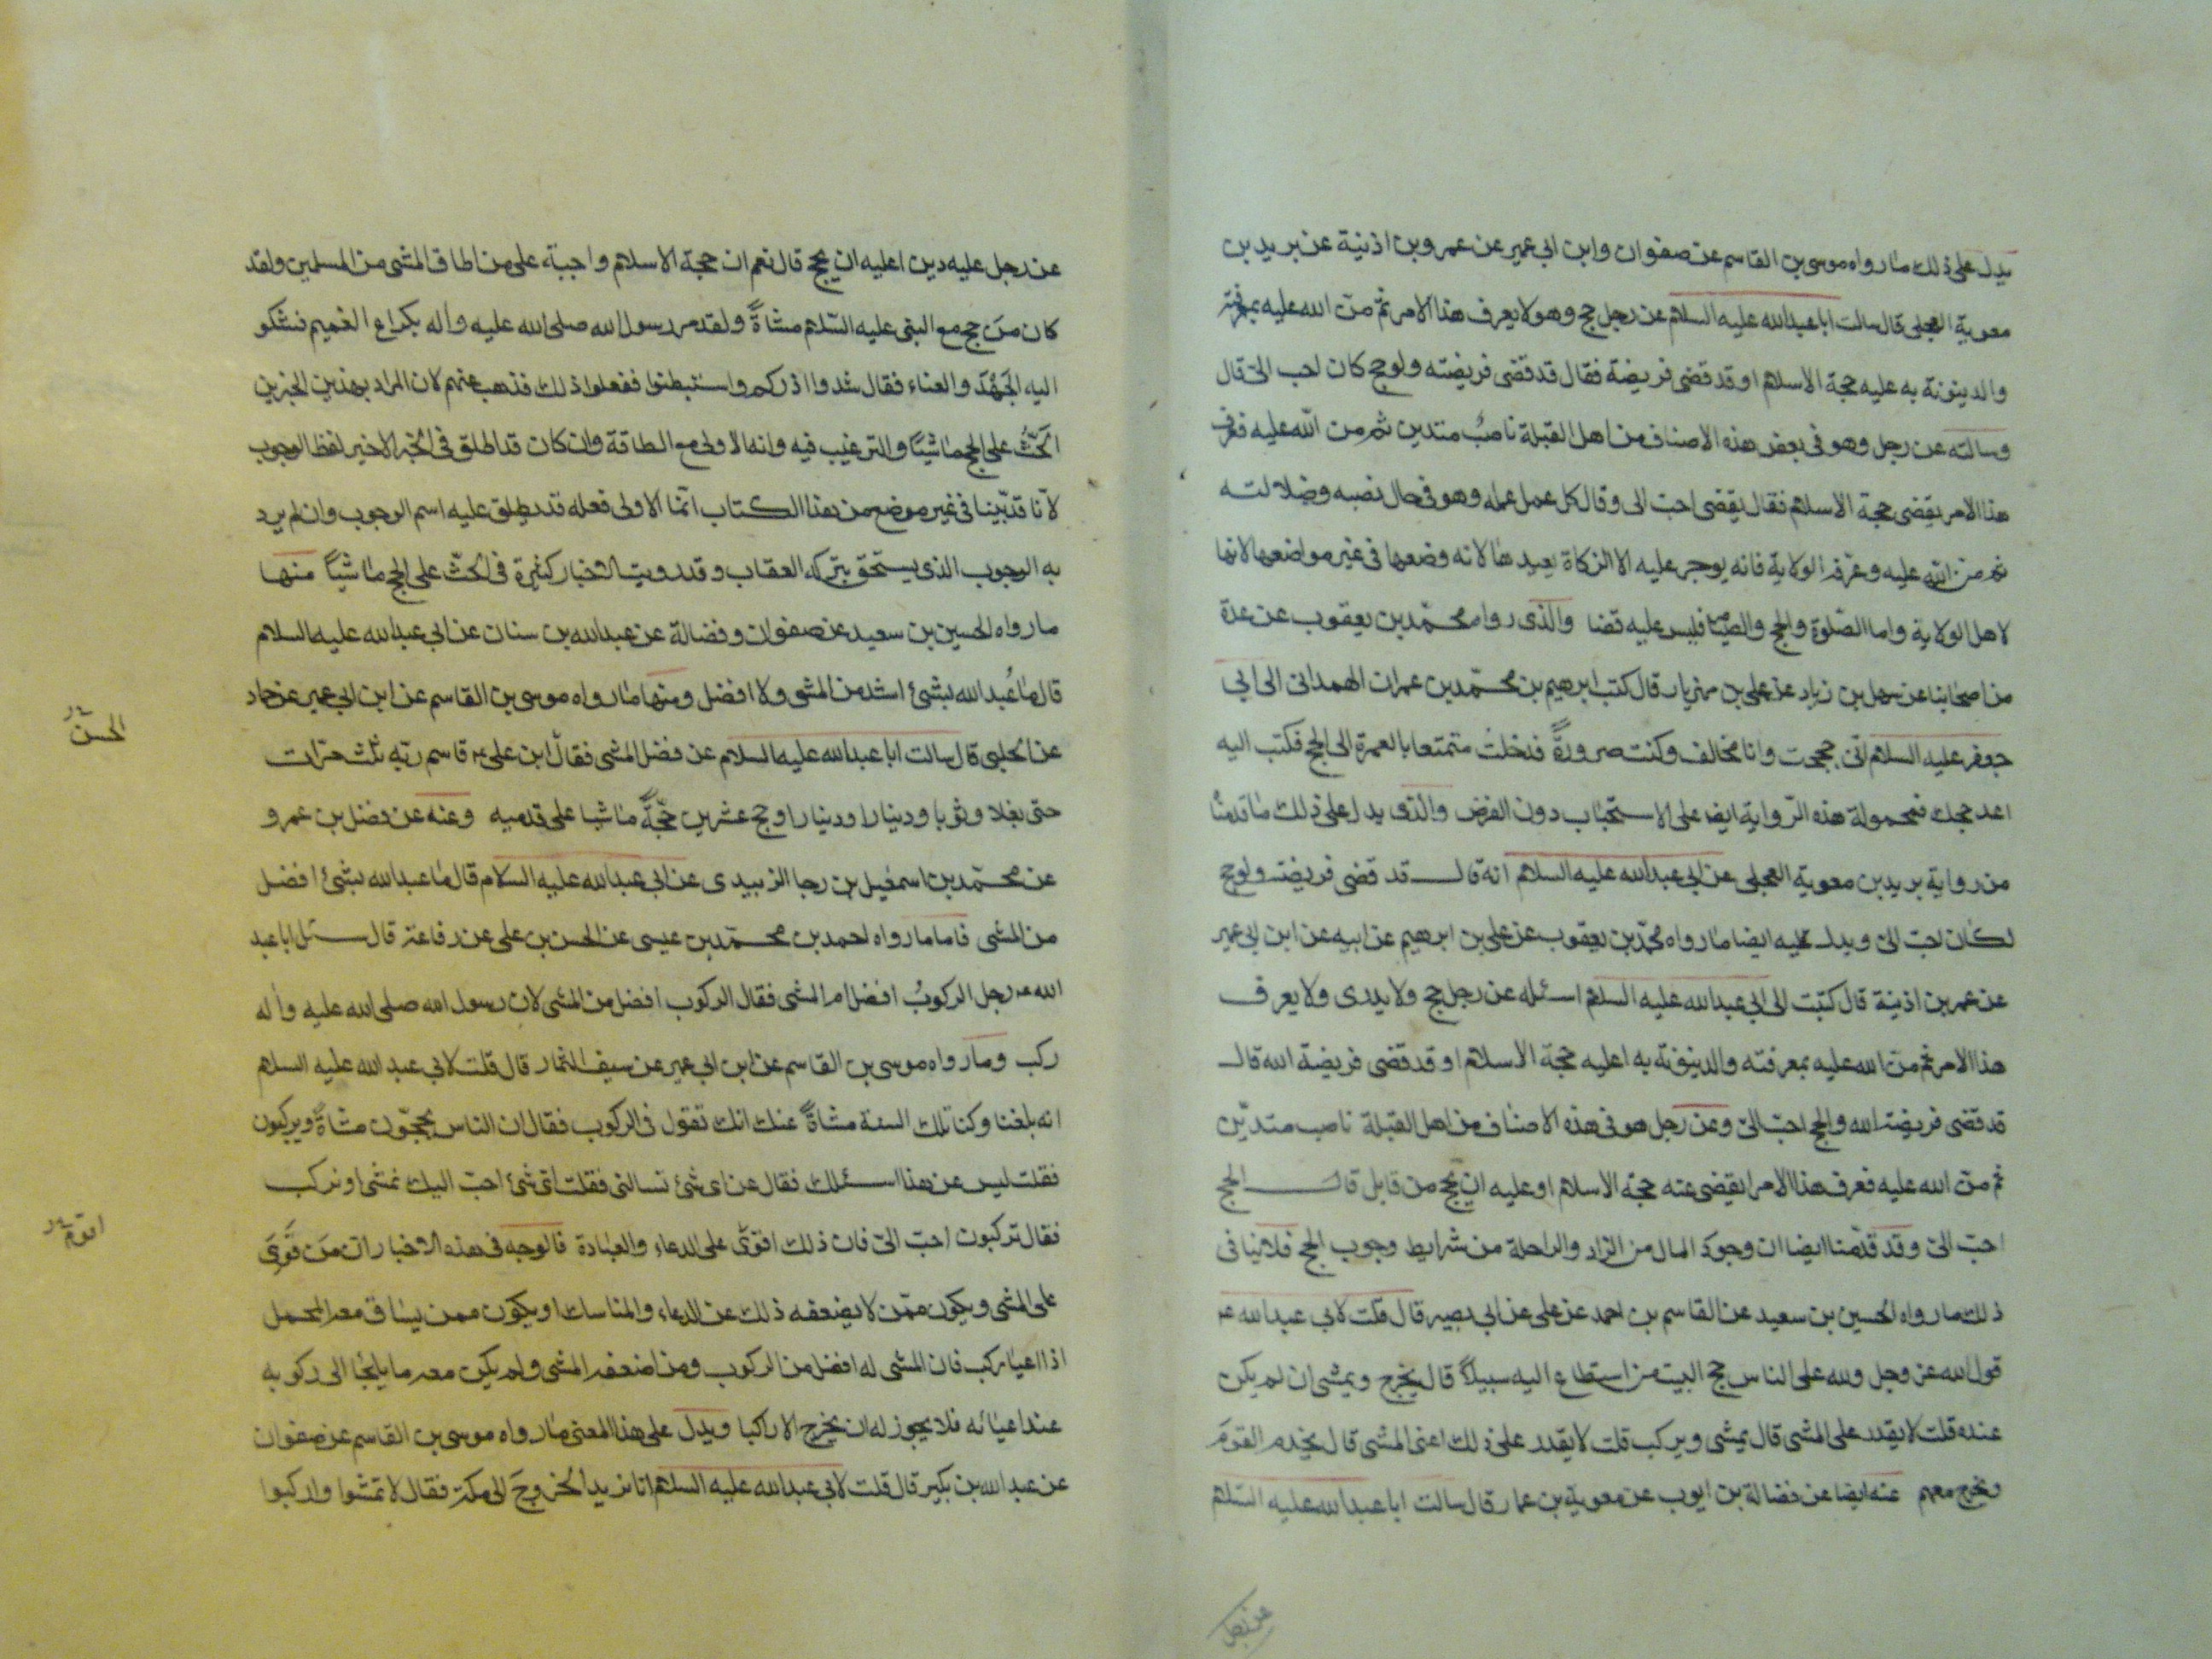 يدل على ذلك ما رواه موسى بن القاسم عن صفوان وابن ابي عمير عن عمر وبن اذنية عن بريد بن
معوية العجلى قال سالت ابا عبدالله عليه السلام عن رجل حج وهو لا يعرف هذا الامر ثم من الله عليه بمعرفته
والدينونة به عليه حجة الاسلام او قد قضى فريضة فقال قد قضى فريضته ولو حج كان احب الىّ قال
وسالته عن رجل وهو فى بعض هذه الاصناف من اهل القبلة ناصبٌ متدين ثم من الله عليه فعرف
هذا الامر يقضى حجة الاسلام فقال يقضى احب الى وقال كل عمل عمله وهو فى حال نصبه وضلالته
ثم منّ الله عليه وعرّفه الولاية فانه يوجر عليه الا الزكاة يعيدها لانه وضعها فى غير مواضعها لانها
لاهل الولاية واما الصّلوة والحج والصيام فليس عليه قضا والذى رواه محمّد بن يعقوب عن عدة
من اصحابنا عن سهل بن زياد عن على بن مهزيار قال كتب ابرهيم بن محمّد بن عمران الهمدانى الى ابي
جعفر عليه السلام انّى حججت وانا مخالف وكنت صرورةً فدخلت متمتعا بالعمرة الى الحج فكتب اليه
اعد حجك فمحمولة هذه الرّواية ايضا على الاستحباب دون الفرض والذى يدل على ذلك ما قدمنا
من رواية بريد بن معوية العجلى عن ابي عبدالله عليه السلام انه قال قد قضى فريضته ولو حج
لكان احب الىّ ويدل عليه ايضا ما رواه محمّد بن يعقوب عن على بن ابرهيم عن ابيه عن ابن ابي عمير
عن عمر بن اذينة قال كتبت الى ابي عبدالله عليه السلام اسئله عن رجل حج ولا يدرى ولا يعرف
هذا الامر ثم منّ الله عليه بمعرفته والدينونة به اعليه حجّة الاسلام او قد قضى فريضة الله قال
قد قضى فريضة الله والحج احبّ الىّ وعن رجل هو فى هذه الاصناف من اهل القبلة ناصب متديّن
ثم منّ الله عليه فعرف هذا الامر ايقضى عنه حجّة الاسلام او عليه ان يحج من قابل قال الحج
احبّ الىّ وقد قدّمنا ايضا ان وجود المال من الزاد والراحلة من شرايط وجوب الحج فلا ينافى
ذلك ما رواه الحسين بن سعيد عن القاسم بن احمد عن على عن ابي بصير قال قلت لابي عبدالله عم
قول الله عز وجل ولله على الناس حج البيت من استطاع اليه سبيلاً قال يخرج ويمشى ان لم يكن
عنده قلت لا يقدر على المشى قال يمشى ويركب قلت لا يقدر على ذلك اعنى المشى قال يخدم القومَ
ويخرج معهم عنه ايضا عن فضالة بن ايوب عن معوية بن عمار قال سالت ابا عبدالله عليه السّلام
عن رجل عليه دين اعليه ان يحج قال نعم ان حجة الاسلام واجبة على من اطاق المشى من المسلمين ولقد
كان منَ حج مع النبى عليه السّلام مشاةً ولقد مر رسول الله صلى الله عليه واله بكراع الغميم فشكو
اليه الجَهْدَ والعناء فقال شدوا ازركم واستبطنوا ففعلوا ذلك فذهب عنهم لان المراد بهذين الخبرين
الحثّ على الحج ماشيًا والترغيب فيه وانه الاولى مع الطاقة وان كان قد اطلق فى الخبر الاخير لفظ الوجوب
لانّا قد بيّنا فى غير موضع من هذا الكتاب انّما الاولى فعله قد يطلق عليه اسم الوجوب وان لم يرد
به الوجوب الذى يستحق بتركه العقاب وقد رويت الاخبار كثيرة فى الحثّ على الحج ماشيًا منها
ما رواه الحسين بن سعيد عن صفوان وفضالة عن عبدالله بن سنان عن ابي عبدالله عليه السلام
قال ما عُبد الله بشئ اشد من المشى ولا افضل ومنها ما رواه موسى بن القاسم عن ابن ابي عمير عن حماد
عن الحلبى قال سالت ابا عبدالله عليه السلام عن فضل المشى فقال ابن على عم قاسم ربّه ثلث مرّات
حتى نعلا وثوبا ودينارا ودينارا وحج عشرين حجّةً ماشيا على قدميه وعنه عن فضل بن عمرو
عن محمّد بن اسمعيل بن رجا الزبيدى عن ابى عبدالله عليه السلام قال ما عبدالله بشئ افضل
من المشى فاما ما رواه احمد بن محمّد بن عيسى عن الحسن بن على عن رفاعة قال سئل ابا عبد
الله عم رجل الركوبُ افضل ام المشى فقال الركوب افضل من المشى لان رسول الله صلى الله عليه واله
ركب وما رواه موسى بن القاسم عن ابن ابي عمير عن سيف التمار قال قلت لابي عبد الله عليه السلام
انه بلغنا وكنا تلك السنة مشاةً عنك انك تقول فى الركوب فقال ان الناس يحجّون مشاةً ويركبون
فقلت ليس عن هذا اسئلك فقال عن اى شئ تسالنى فقلت اى شئ احبّ اليك نمشى او نركب
فقال تركبون احبّ الىّ فان ذلك اقوى على الدعاء والعبادة فالوجه فى هذه الاخبار ان مَن قَوِىَ
على المشى ويكون ممّن لا يضعفه ذلك عن الدعاء والمناسك او يكون ممن يساق معه المحمل
اذا اعيا ركب فان المشى له افضل من الركوب ومن اضعفه المشى ولم يكن معه ما يلجأ الى ركوبه
عند اعيائه فلا يجوز له ان يخرج الا راكبا ويدل على هذا المعنى ما رواه موسى بن القاسم عن صفوان
عن عبد الله بن بكير قال قلت لابي عبدالله عليه السلام انا نريد الخروجَ الى مكة فقال لا تمشوا واركبوا
الحسن